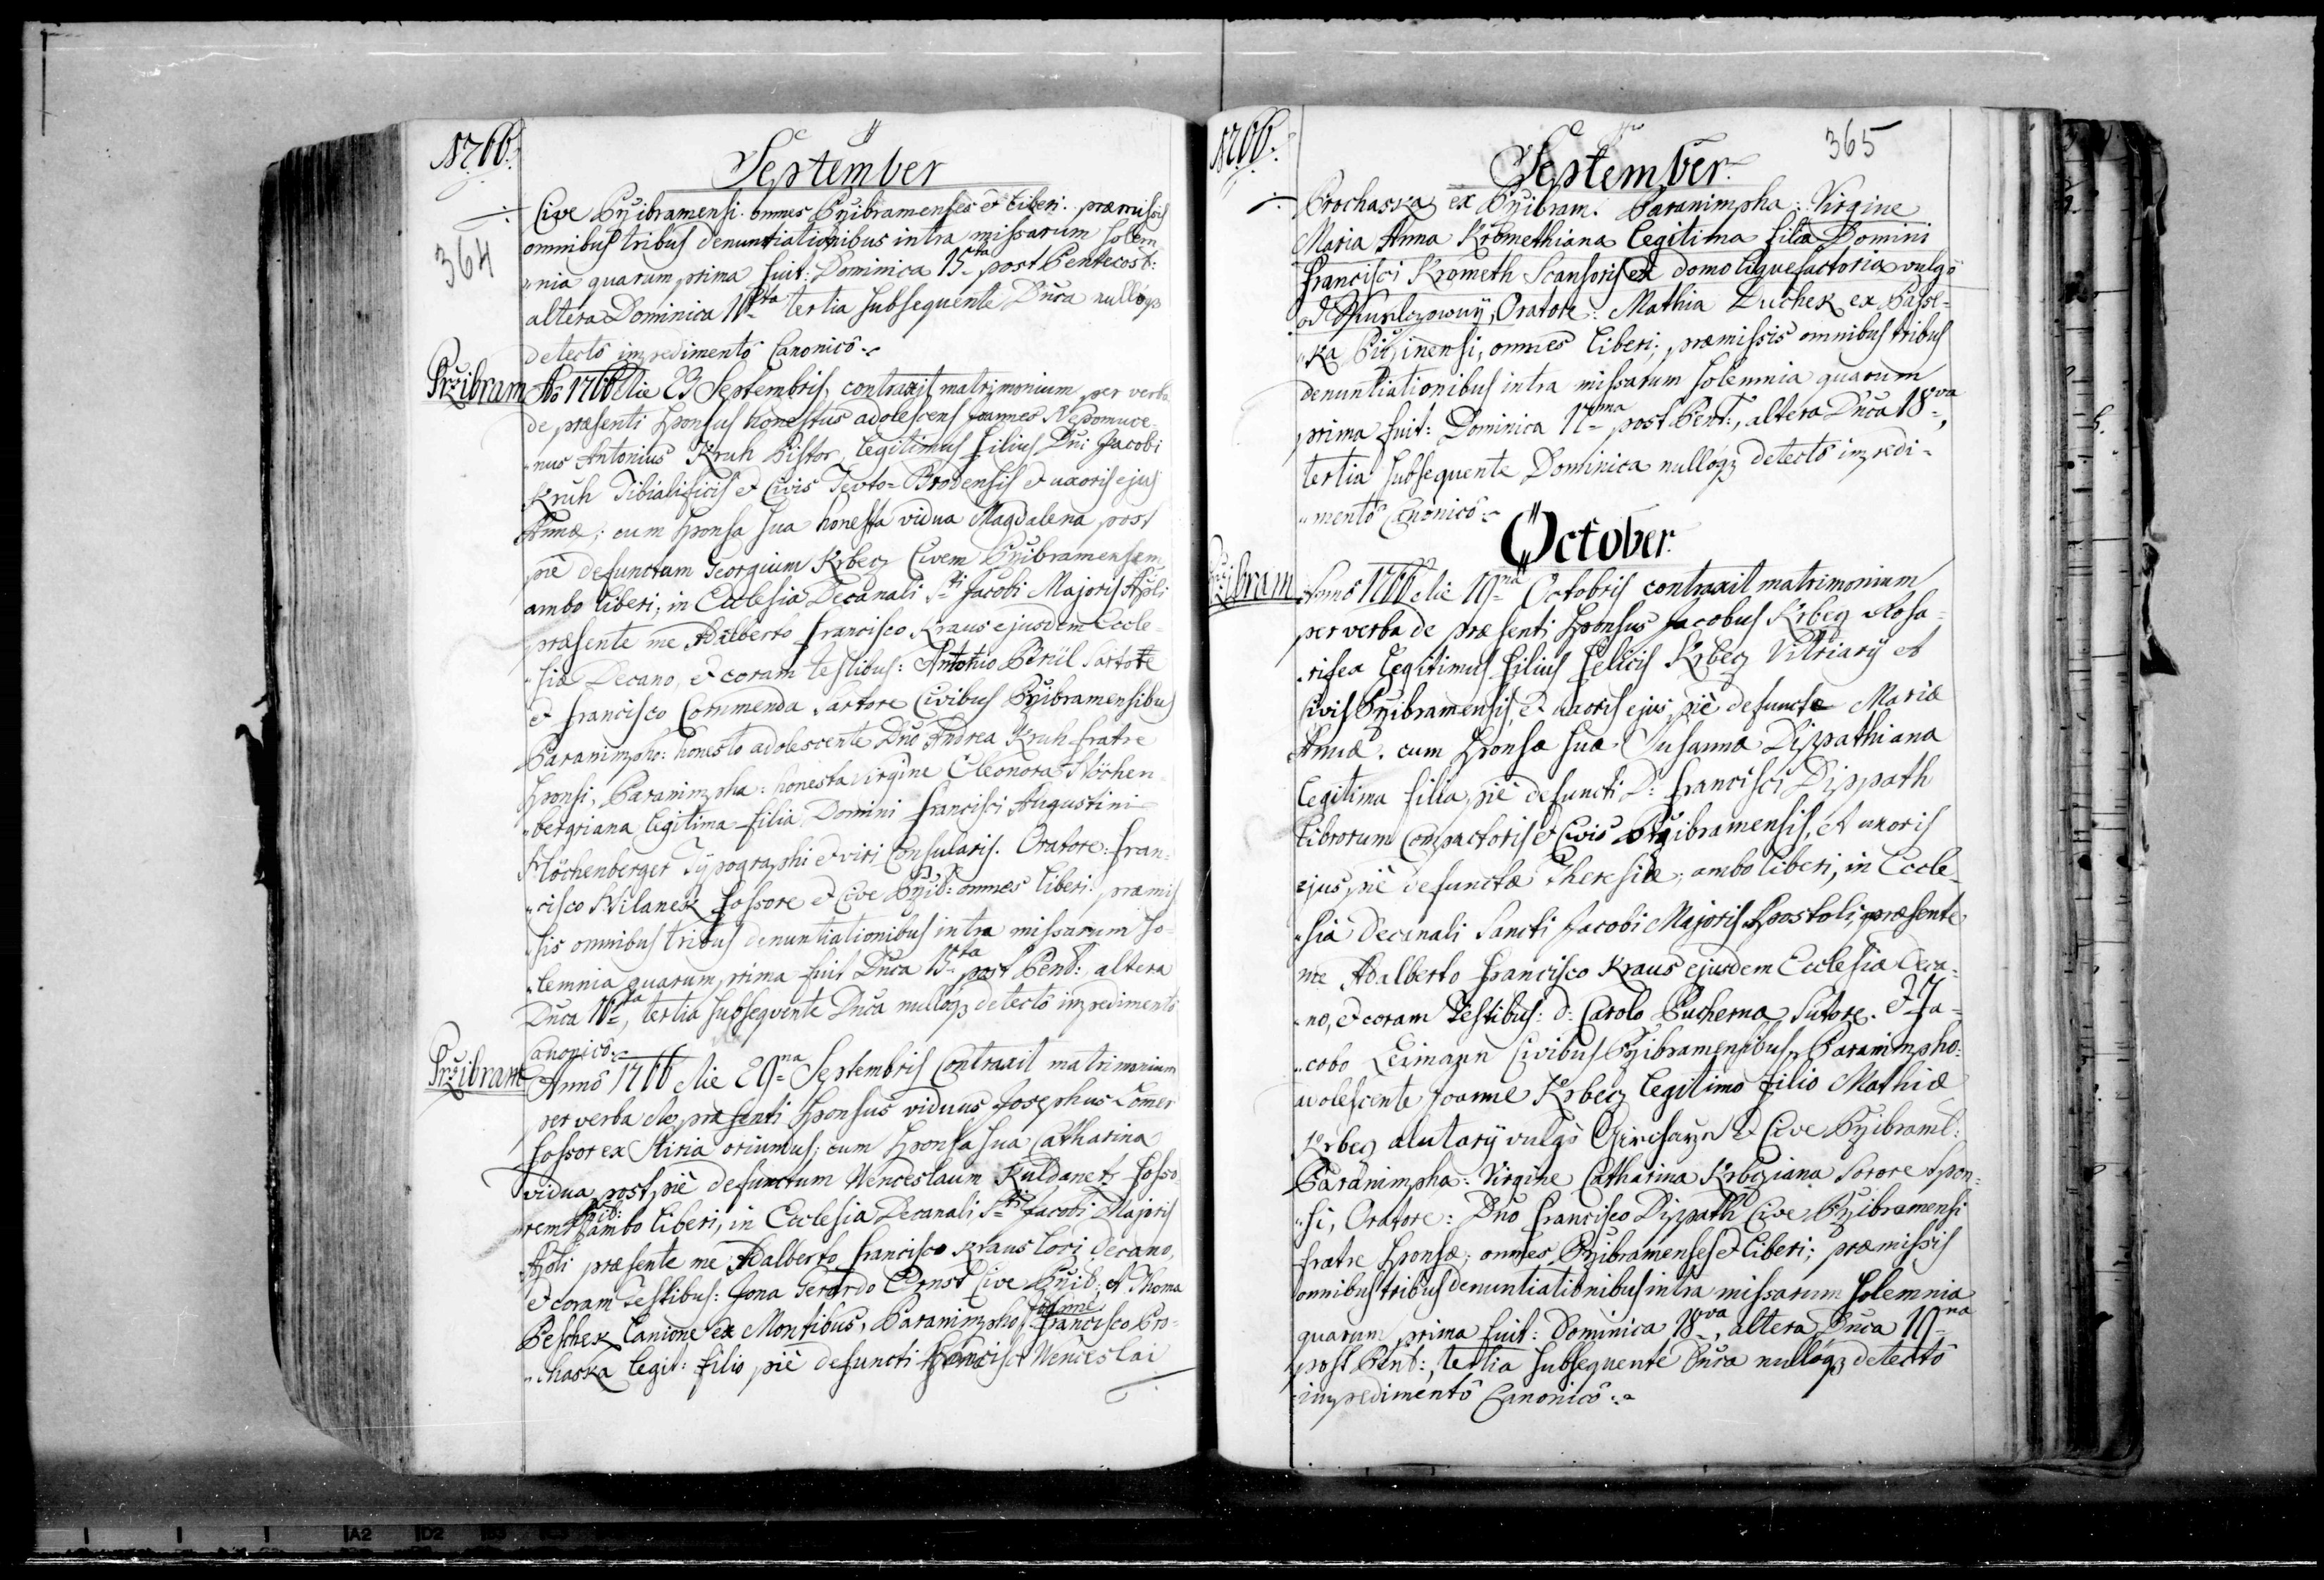 1766.
September
Cive Przibramensi. omnes Przibramenses et liberi. præmissis
364
omnibus tribus denuntiationibus intra missarum solem-
„nia quarum prima fuit: Dominica 15ta post Pentecost:
altera Dominica 16ta tertia subsequente Dnca nullóqz
detectô impedimentô Canonicô.
Przibram
Ao 1766 die Septembris, contraxit matrimonium per verba
de præsenti sponsus honestus adolescens Joannes Nepomuce-
„nus Antonius Kruh Pistor, legitimus filius Dni Jacobi
Kruh Tibialificis et Civis Tevto-Brodensis et uxoris ejus
Annæ; cum sponsa sua honesta vidua Magdalena post
piè defunctum Georgium Krbecz Civem Przibramensem
ambo liberi; in Ecclesia Decanali Sti Jacobi Majoris Apli
præsente me Adalberto Francisco Kraus ejusdem Eccle-
„siæ Decano, et coram testibus: Antonio Sartore
et Francisco Commenda Sartore Civibus Przibramensibus
Paranimpho: honesto adolescente Dno Andrea Kruh fratre
sponsi, Paranimpha: honesta virgine Eleonora Höchen-
„bergriana legitima filia Domini Francisci Augustini
Höchenberger Typographi et viri Consularis. Oratore: Fran-
„cisco Milanek fossore et Cive Przib: omnes liberi. præmis-
„sis omnibus tribus denuntiationibus intra missarum so-
„lemnia quarum prima fuit Dnca 15ta post Pent: altera
Dnca 16ta, tertia subsequente Dnca nullóqz detectô impedimentô
Canonicô.
Przibram
Annô 1766 die 29na Septembris Contraxit matrimonium
per verba de præsenti sponsus viduus Josephus Lomer
fossor ex Stiria oriundus; cum sponsa sua Catharina
vidua post piè defunctum Wenceslaum Kuldanek fosso-
„rem Przib: ambo liberi, in Ecclesia Decanali Sti Jacobi Majoris
Apli præsente me Adalberto Francisco Kraus loci Decano,
et coram Testibus: Jona Gerardo Ernst Cive Przib: et Thoma
Peschek Lanione ex Montibus, Paranimpho: Joanne Francisco Pro-
„chaska legit: filio piè defuncti Wenceslai
1766.
365
September.
Prochaska ex Przibram. Paranimpha: Virgine
Maria Anna Kromethiana legitima filia Domini
Francisci Krometh Scansoris ex domo liquefactoria vulgo
Oratore: Mathia Duchek ex Passe-
„ka omnes liberi; præmissis omnibus tribus
denuntiationibus intra missarum solemnia quarum
prima fuit: Dominica 17ma post Pent:, altera Dnca 18va,
tertia subsequente Dominica nullóqz detectô impedi-
„mentô Canonicô.
October.
Przibram
Annô 1766 die 19na Octobris contraxit matrimonium
per verba de præsenti sponsus Jacobus Krbecz Rosa-
„rifex legitimus filius Felicis Krbecz Vitriarij et
Civis Przibramensis, et uxoris ejus piè defunctæ Mariæ
Annæ. cum sponsa sua Susanna Dippathiana
legitima filia piè defuncti D: Francisci Dippath
librorum Compactoris et Civis Przibramensis, et uxoris
ejus piè defunctæ Theresiæ; ambo liberi, in Eccle-
„sia Decanali Sancti Jacobi Majoris Apostoli, præsente
me Adalberto Francisco Kraus ejusdem Ecclesiæ Deca-
„no, et coram Testibus: D: Carolo Pucherna Sutore. et Ja-
„cobo Leimann Civibus Przibramensibus, Paranimpho:
adolescente Joanne Krbecz legitimo filio Mathiæ
Krbecz alutarij vulgò et Cive Przibram:
Paranimpha: Virgine Catharina Krbecziana Sorore Spon-
„si, Oratore: Dno Francisco Dippath Cive Przibramensi
fratre sponsæ; omnes Przibramenses et liberi; præmissis
omnibus tribus denuntiationibus intra missarum solemnia
quarum prima fuit: Dominica 18va, altera Dnca 19na
post Pent:, tertia subsequente Dnca nullóqz detectô
impedimentô Canonicô.